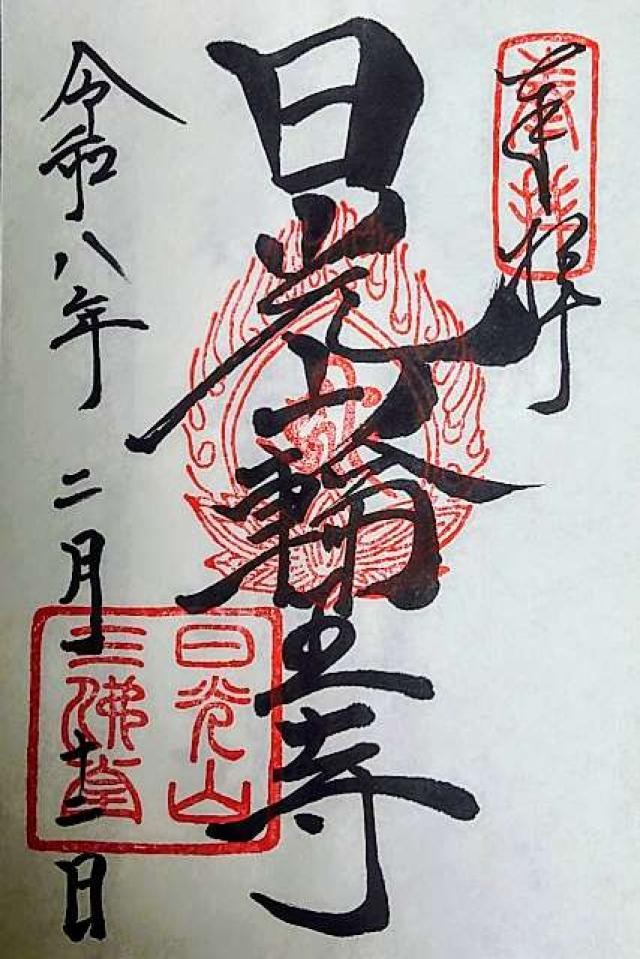 奉拝
日光山輪王寺
令和八年 二月 十二日
奉拝
日光山
三佛堂